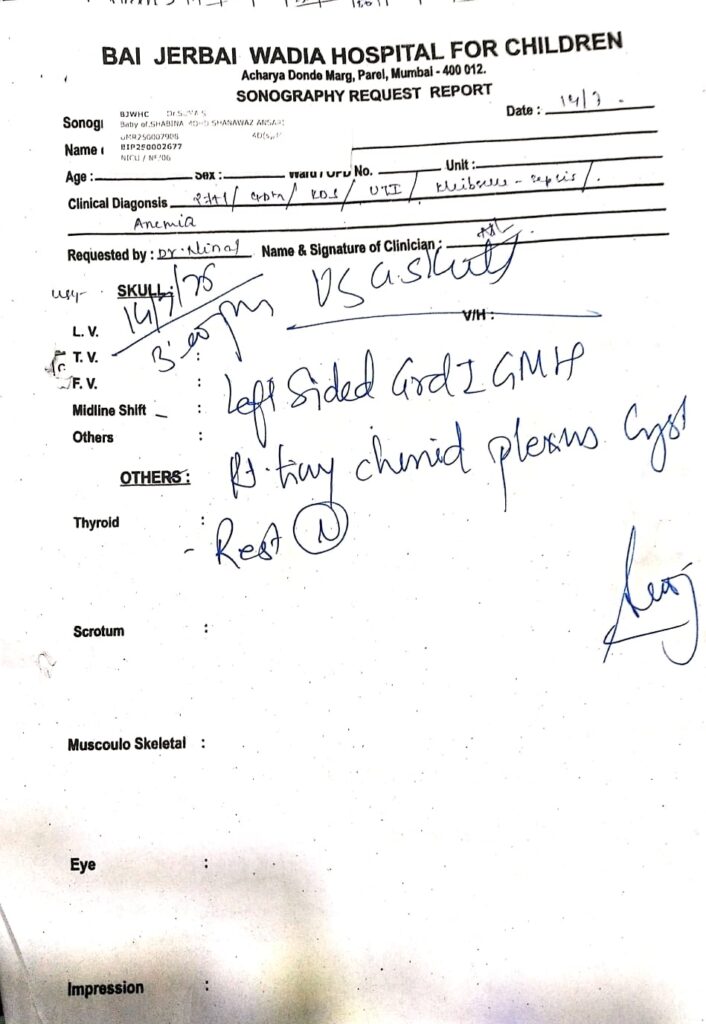 BAI JERBAI WADIA HOSPITAL FOR CHILDREN
Acharya Donde Marg, Parel, Mumbai - 400 012.
SONOGRAPHY REQUEST REPORT
Date : 14/7 -
Sonog
BJWHC
Baby of.SHABINA SHANAWAZ ANSARI
Name
BIP250002677
NICU /
Age : Sex : Ward / OPD No. Unit :
Clinical Diagonsis / / RDS / UTI / - sepsis /.
Anemia
Requested by : Dr. Name & Signature of Clinician :
SKULL : 14/7/25 USG skull
3:00 pm
L. V. V/H :
T. V. :
F. V. :
Left Sided Grd I GMH
Midline Shift - :
Others :
Rt. tiny choroid plexus Cyst
OTHERS :
Thyroid :
- Rest N
Scrotum :
Muscoulo Skeletal :
Eye :
Impression :